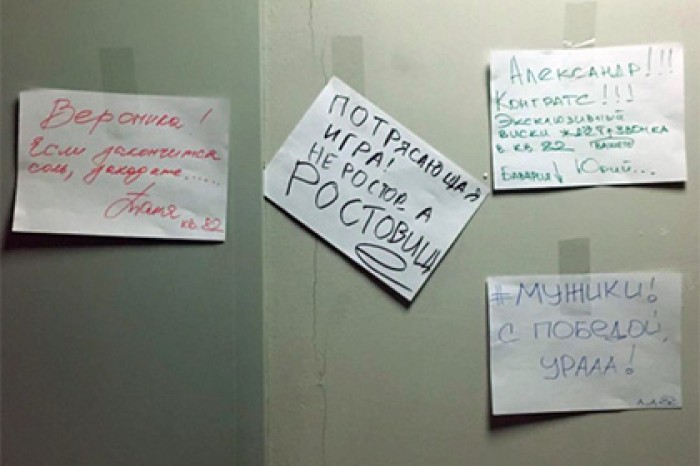 Вероника!
Если закончится
соль, заходите.....
Таня
кв. 82
ПОТРЯСАЮЩАЯ
ИГРА!
НЕ РОСТОВ, А
РОСТОВИЩЕ
АЛЕКСАНДР!!!
КОНГРАТС!!!
ЭКСКЛЮЗИВНЫЙ
ВИСКИ ЖДЁТ ЗВОНКА
В КВ. 82
БАВАРИЯ Юрий...
#МУЖИКИ!
С ПОБЕДОЙ,
УРААА!